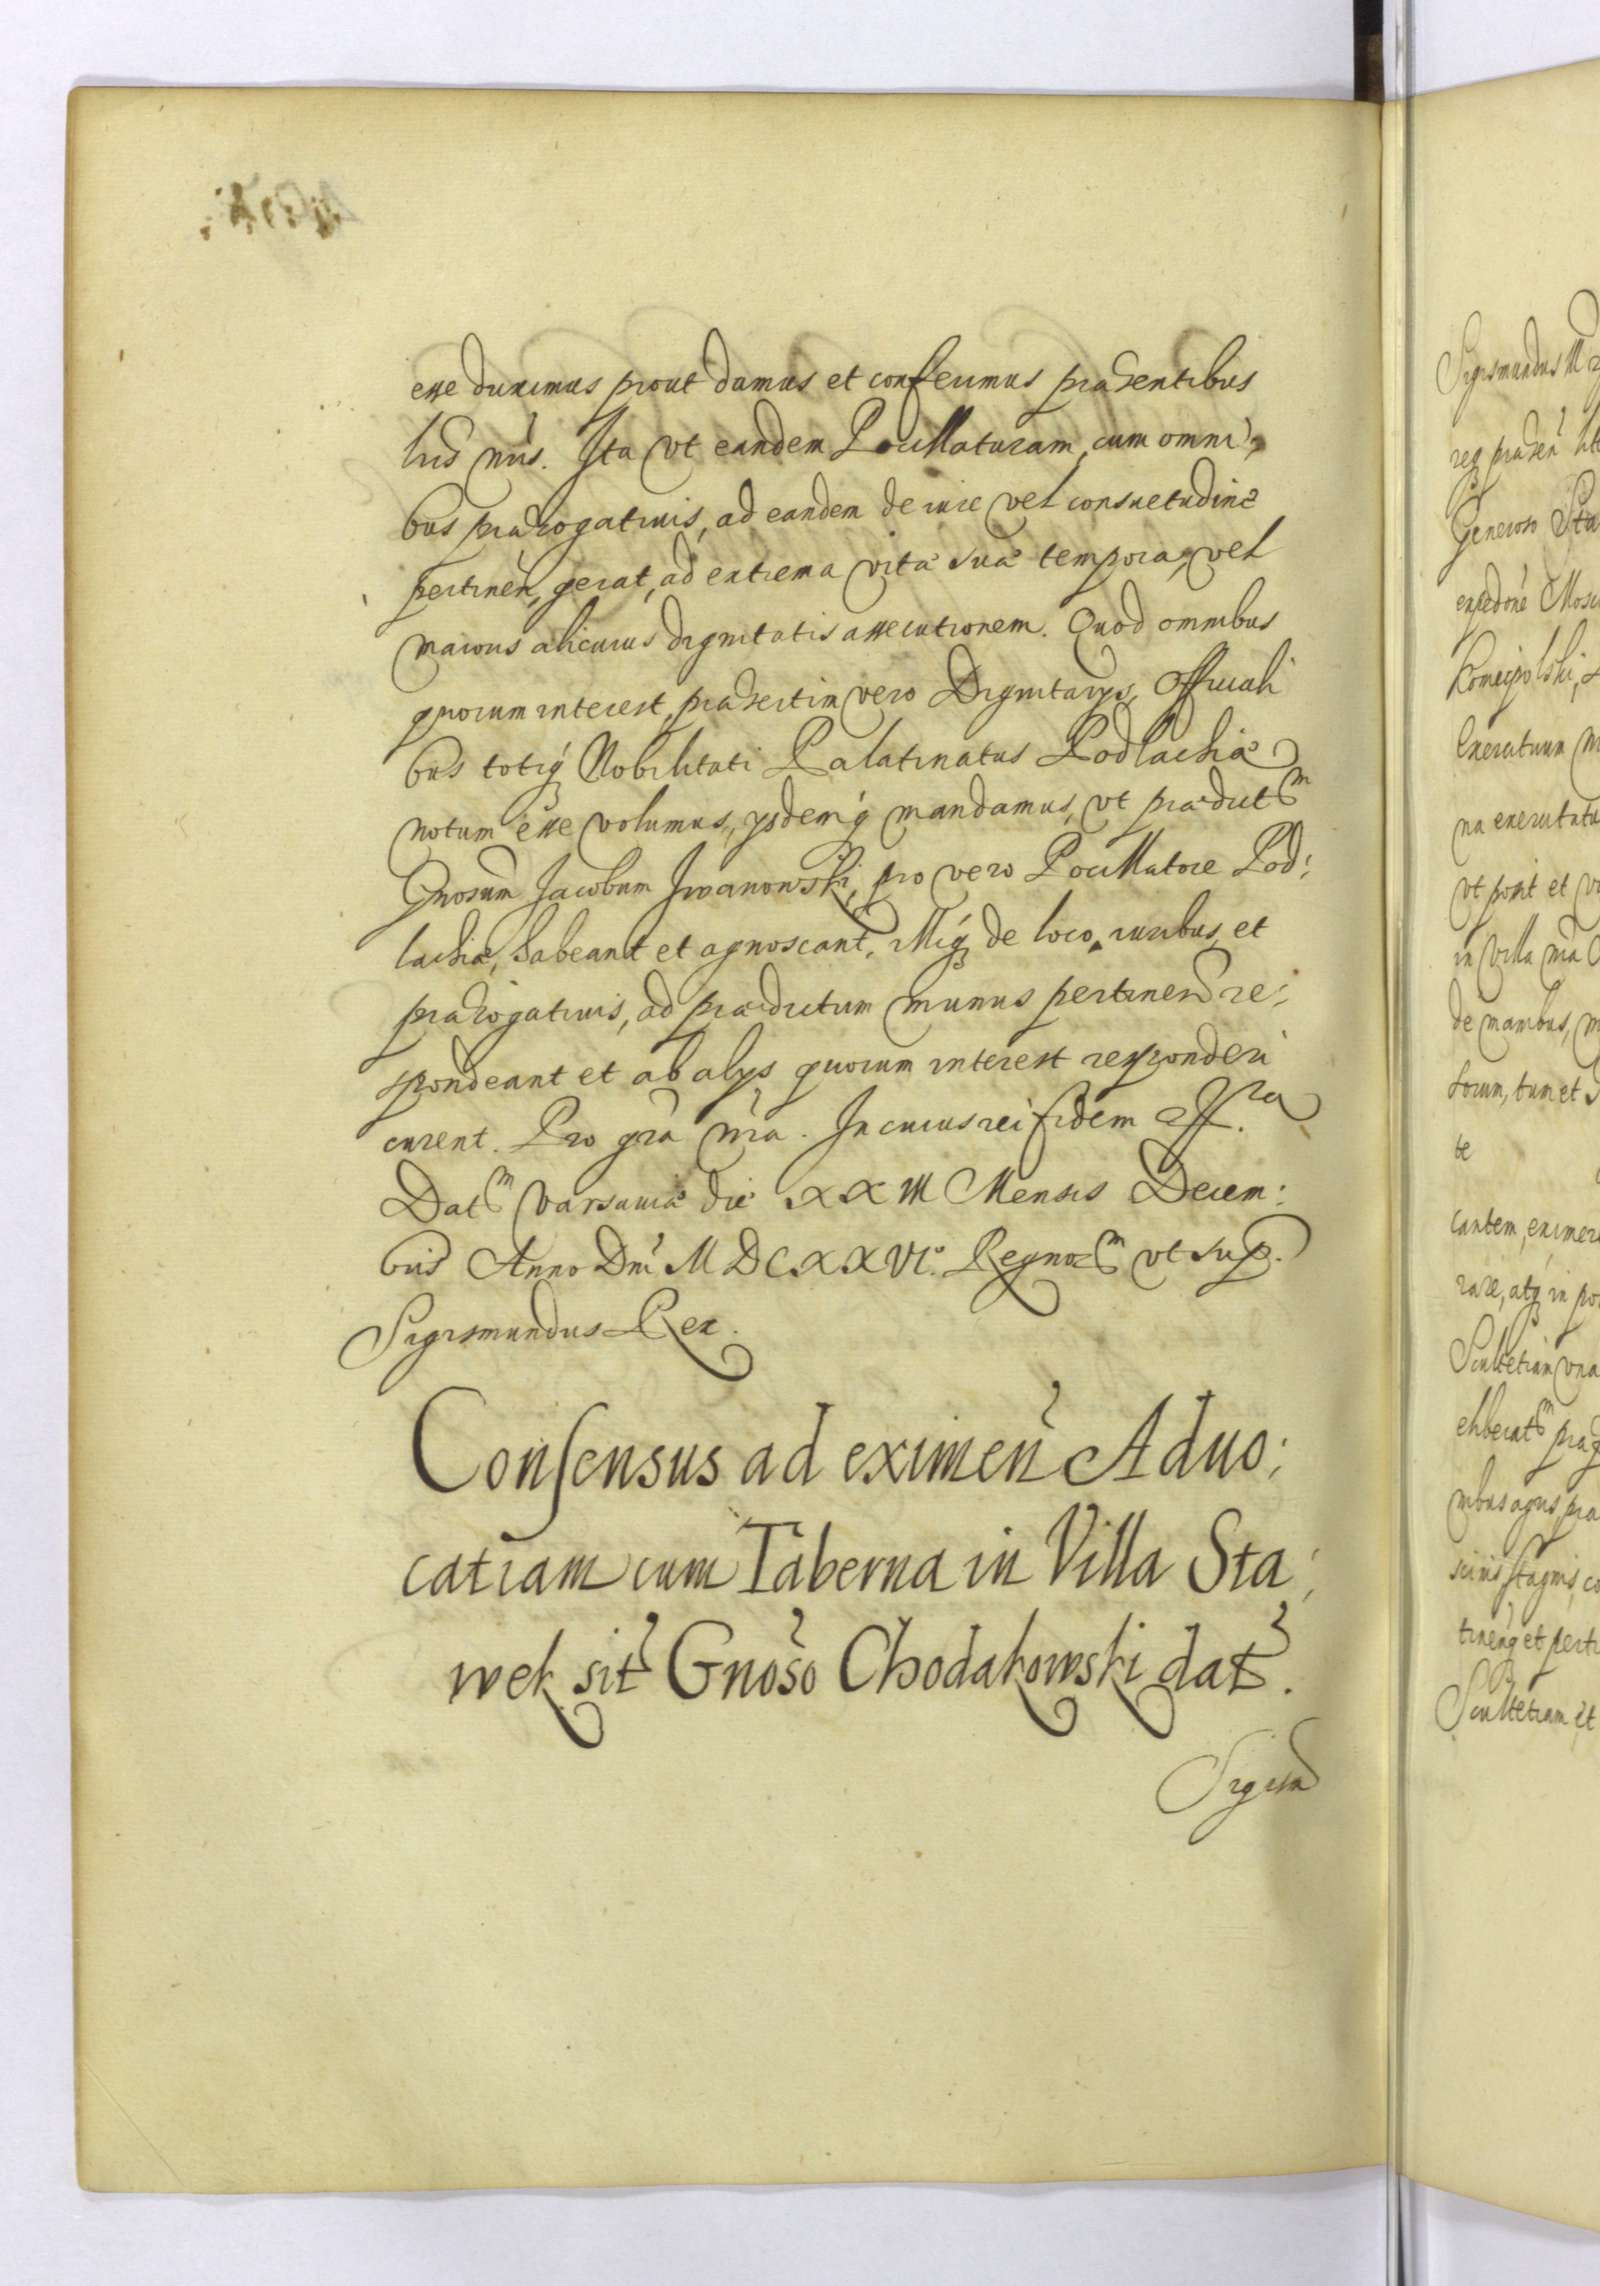 esse duximus prout damus et conferimus præsentibus
lris nris. Ita vt eandem Pocillaturam, cum omni:
bus prærogatiuis, ad eandem de iure vel consuetudine
pertinen, gerat, ad extrema vitæ suæ tempora, vel
maioris alicuius dignitatis assecutionem. Quod omnibus
quorum interest, præsertim vero Dignitarys, Officiali
bus totiq Nobilitati Palatinatus Podlachiæ
notum esse volumus, ysdemq mandamus, vt prædictm
Gnosum Jacobum Iwanowski, pro vero Pocillatore Pod:
lachiæ, habeant et agnoscant, illiq de loco, iuribus et
prærogatiuis, ad prædictum munus pertinen re:
spondeant et ab alys quorum interest responderi
curent. Pro gra nra. In cuius rei fidem etc.
Datm Varsauiæ die XXIII Mensis Decem:
bris Anno Dni MDCXXVI. Regnorm vt sup.
Sigismundus Rex.
Consensus ad eximen Aduo:
catiam cum Taberna in Villa Sta:
wek sit Gnoso Chodakowski dat.
Sigism
Sigismundus III
reg præsen
Generoso Sta
expedone
Koniecpolski,
vt possit et
in Villa nra
de manibus,
te
cantem, eximere
rare, atq in
Scultetiam vna
nibus agris
Scultetiam, et